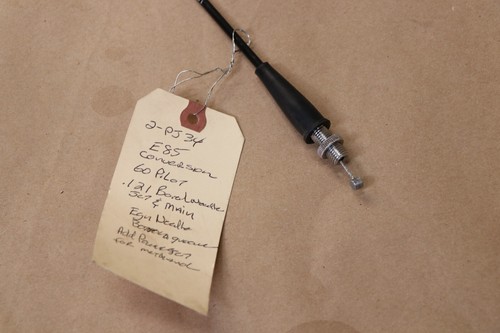 2-PJ34
E85
CONVERSION
60 PILOT
.121 Bored Needle
Jet & Main
Egn Needle
Add Power Jet
for methanol